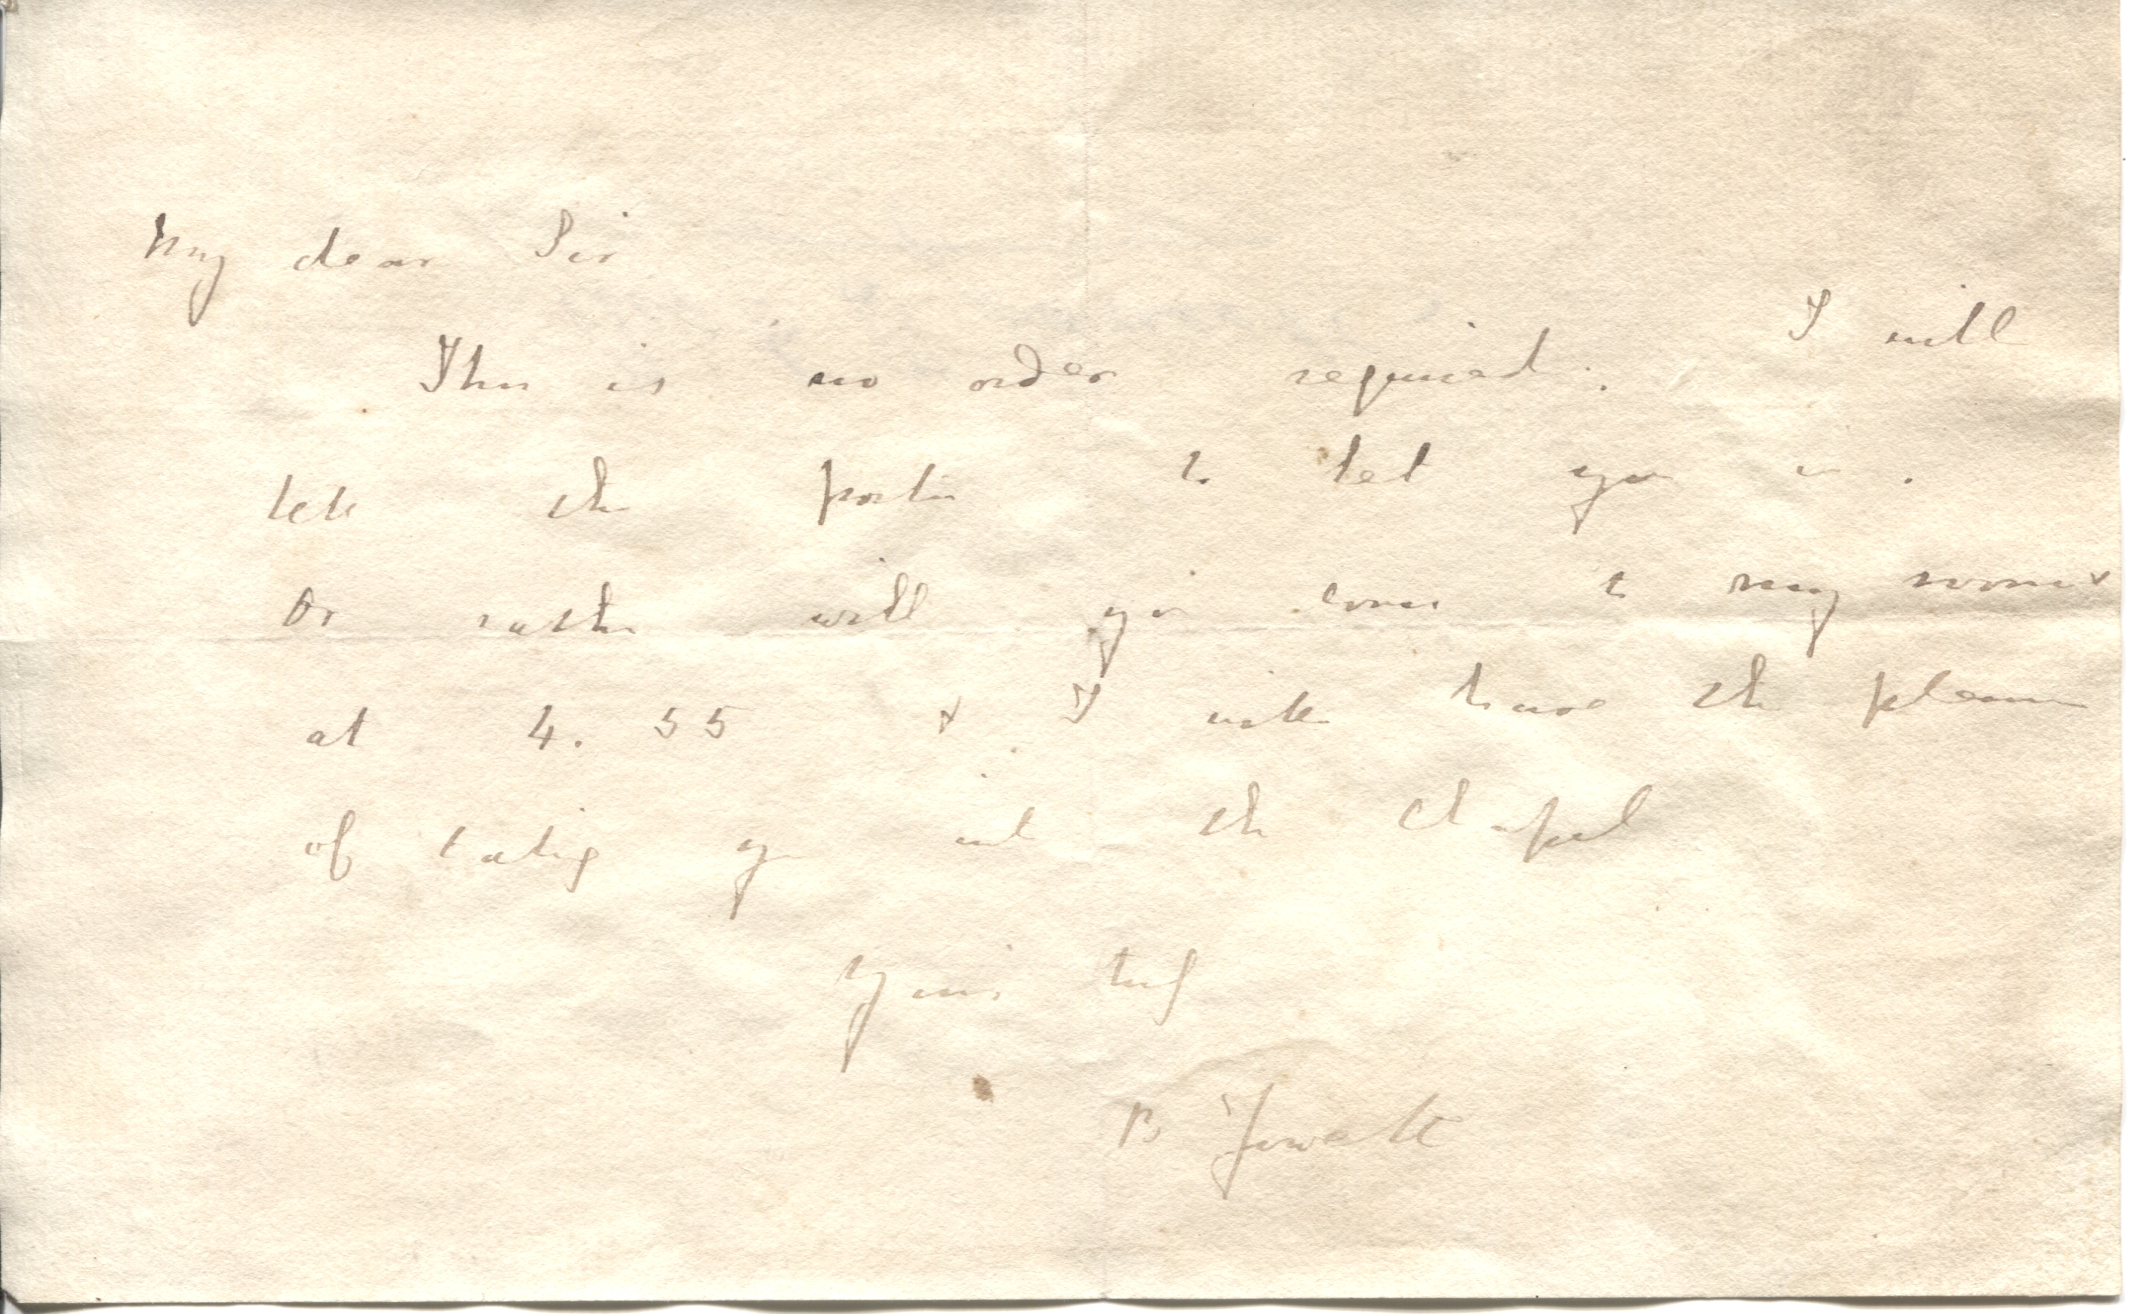 My dear Sir
There is no order required. I will
tell the porter to let you in.
Or rather will you come to my rooms
at 4.55 & I will have the pleasure
of taking you into the Chapel
Yours truly
B Jowett